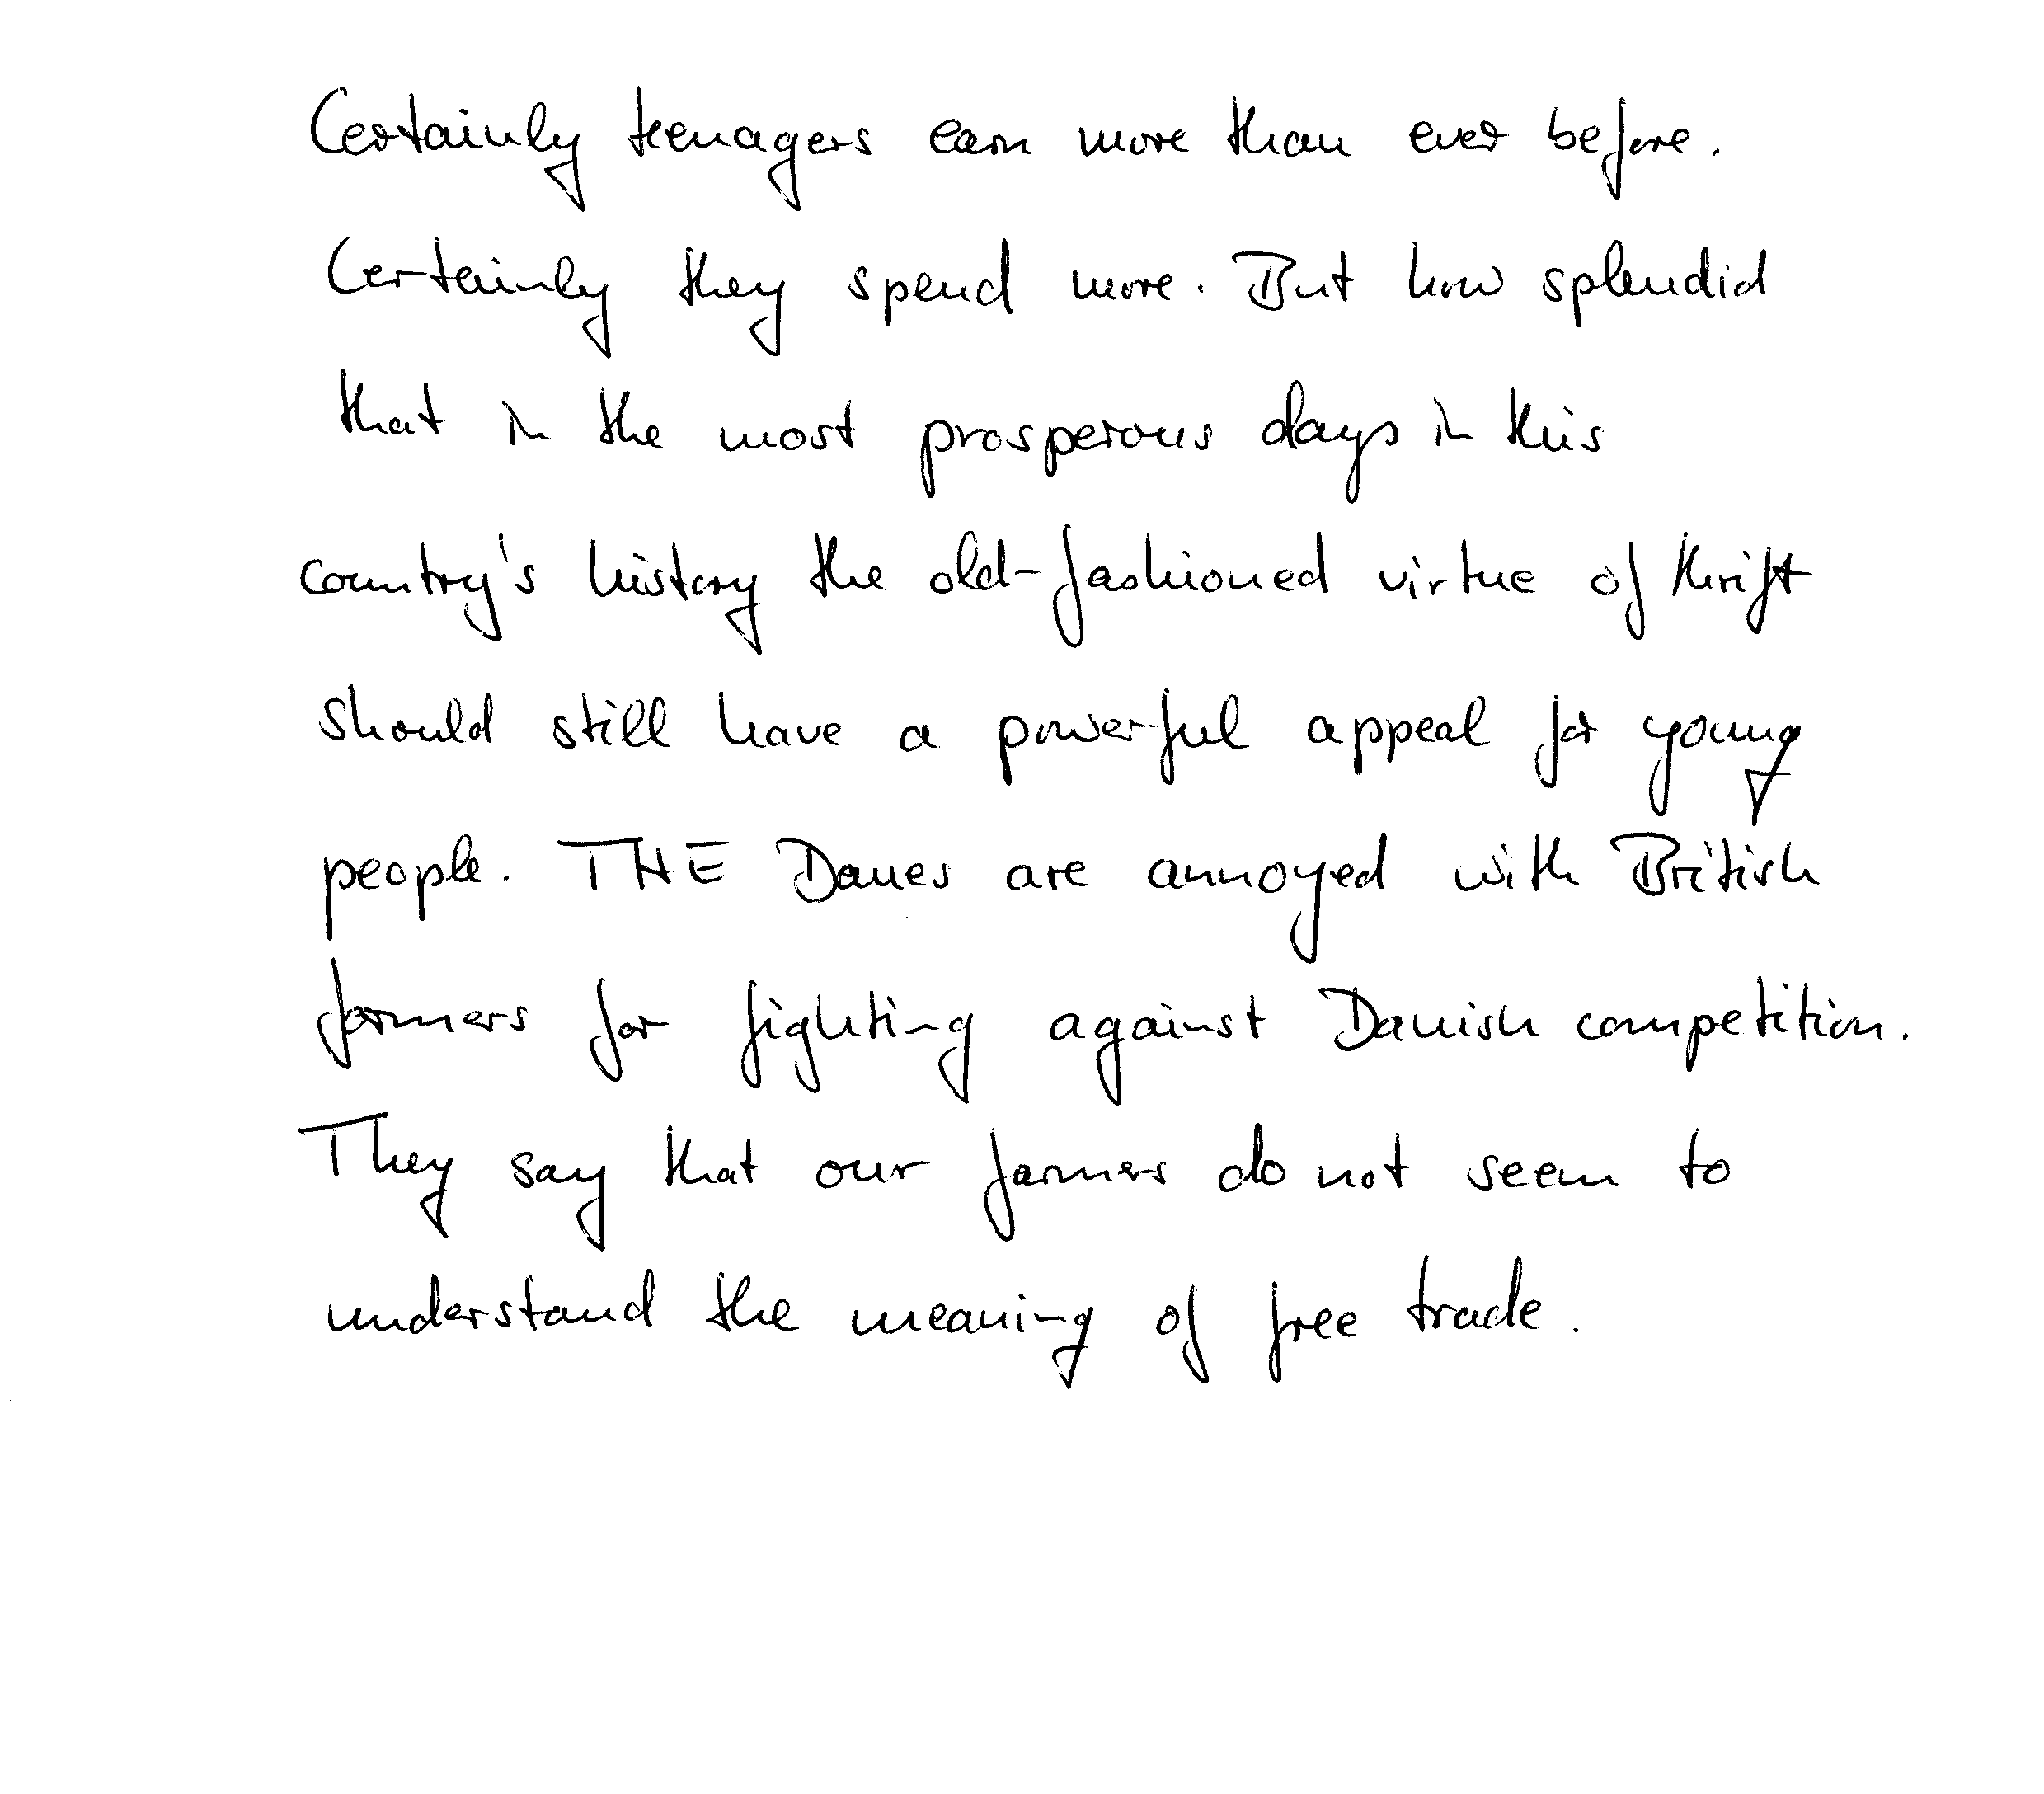 Certainly teenagers earn more than ever before.
Certainly they spend more. But how splendid
that in the most prosperous days in this
country's history the old-fashioned virtue of thrift
should still have a powerful appeal for young
people. THE Danes are annoyed with British
farmers for fighting against Danish competition.
They say that our farmers do not seem to
understand the meaning of free trade.